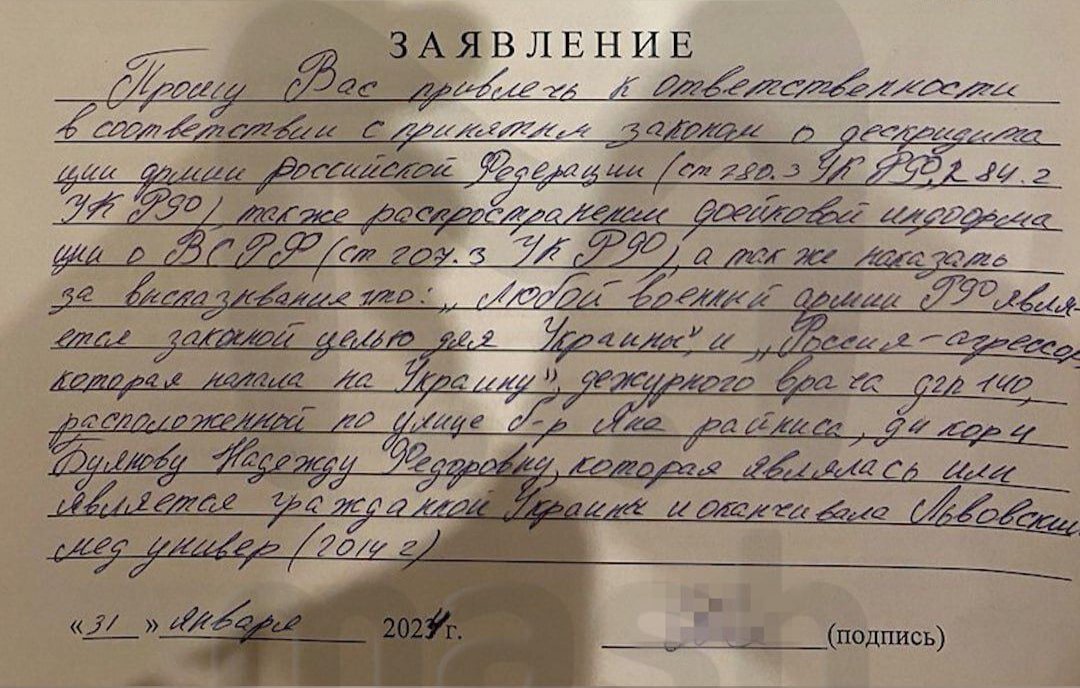 ЗАЯВЛЕНИЕ
Прошу Вас привлечь к ответственности
в соответствии с принятым законом о дескридита
ции армии Российской Федерации (ст 280.3 УК РФ, 284.2
УК РФ) также распространением фейковой информа
ции о ВС РФ (ст 207.3 УК РФ), а так же наказать
за высказывание что: „Любой военный армии РФ явля-
ется законной целью для Украины", и „Россия-агрессор,
которая напала на Украину", дежурного врача дгп 140,
расположенной по улице б-р Яна райниса, д 4 кор 4
Буянову Надежду Федоровну, которая являлась или
является гражданкой Украины и оканчивала Львовский
мед универ (2014 г)
«31» января 2024 г. (подпись)
mash